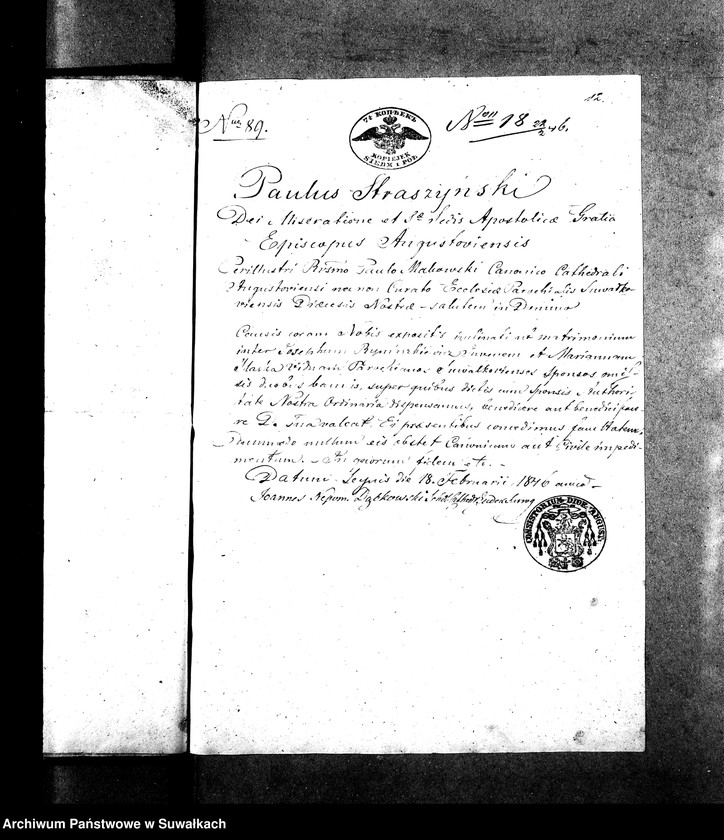 12.
Nus 89.
7½ КОПѢЕКЪ
KOPIEJEK
SIEDM i PÓŁ
Non 18 22/2 46.
Paulus Straszyński
Dei Miseratione et Stæ Sedis Apostolicæ Gratia
Episcopus Augustoviensis
Perillustri Rssmo Paulo Makowski Canonico Cathedrali
Augustoviensi nec non Curato Ecclesiæ Parochialis Suwałko-
viensis Diœcesis Nostræ - salutem in Domino
Causis coram Nobis expositis ut matrimonium
inter Josephum juvenem et Mariannam
viduam Parochianos Suwałkovienses Sponsos omis-
sis duobus bannis, super quibus dictis cum Sponsis Authori-
tate Nostra Ordinaria dispensamus, benedicere aut benedici face-
re D. Tua valeat. Ei præsentibus concedimus facultatem,
dummodo nullum eis obstet Canonicum aut Civile impedi-
mentum. - In quorum fidem etc. -
Datum Seynis die 18. Februarii 1846 anno -
Joannes Nepom.
CONSISTORIUM DIOE. AUGUST.
Archiwum Państwowe w Suwałkach